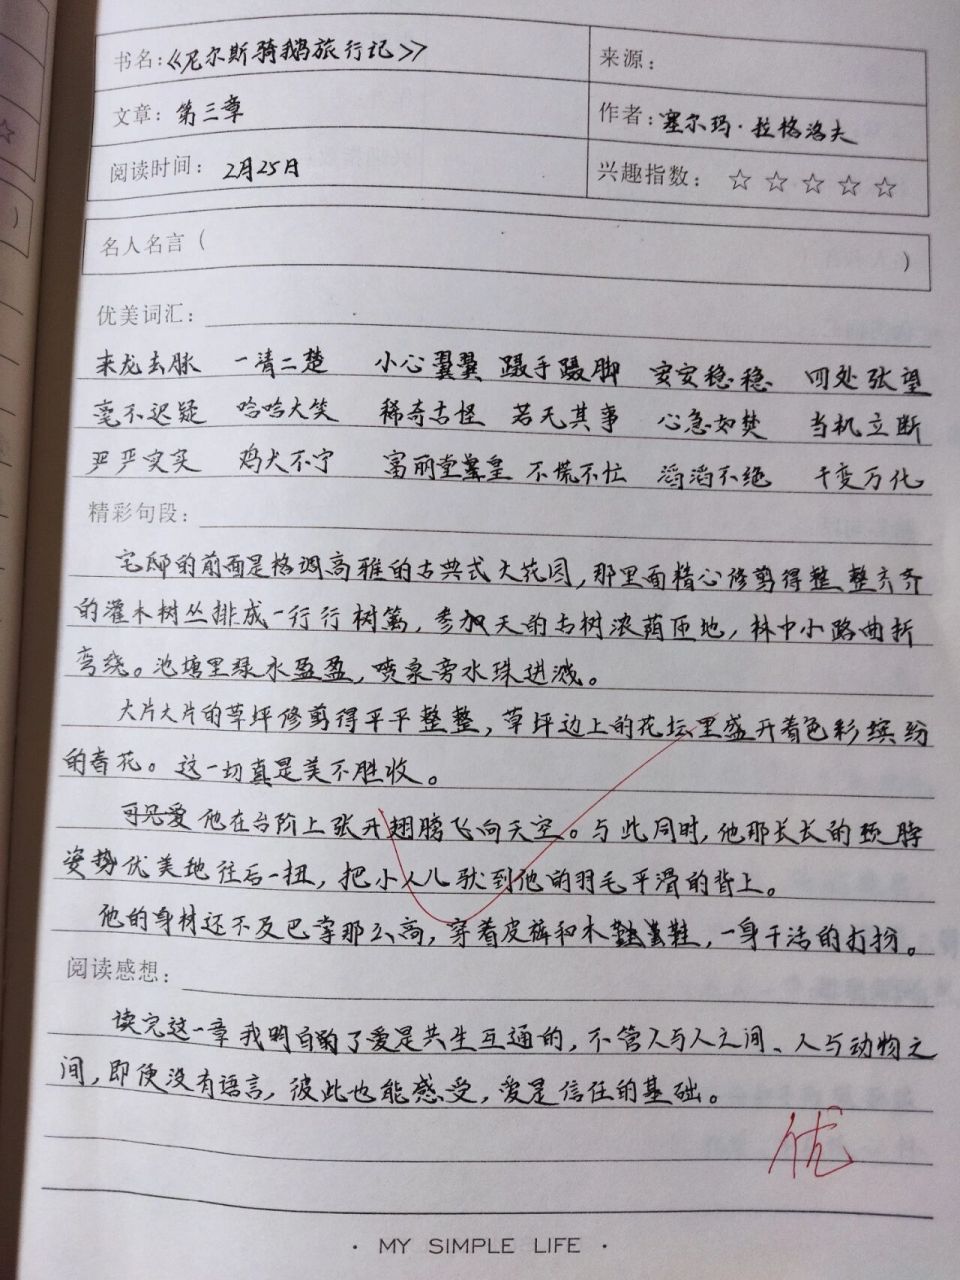 书名：《尼尔斯骑鹅旅行记》 来源：
文章：第三章 作者：塞尔玛·拉格洛夫
阅读时间：2月25日 兴趣指数：☆☆☆☆☆
名人名言（ ）
优美词汇：
来龙去脉 一清二楚 小心翼翼 蹑手蹑脚 安安稳稳 四处张望
毫不迟疑 哈哈大笑 稀奇古怪 若无其事 心急如焚 当机立断
严严实实 鸡犬不宁 富丽堂皇 不慌不忙 滔滔不绝 千变万化
精彩句段：
宅邸的前面是格调高雅的古典式大花园，那里面精心修剪得整整齐齐
的灌木树丛排成一行行树篱，参加天的古树浓荫匝地，林中小路曲折
弯绕。池塘里绿水盈盈，喷泉旁水珠迸溅。
大片大片的草坪修剪得平平整整，草坪边上的花坛里盛开着色彩缤纷
的春花。这一切真是美不胜收。
他在台阶上张开翅膀飞向天空。与此同时，他那长长的颈脖
姿势优美地往后一扭，把小人儿驮到他的羽毛平滑的背上。
他的身材还不及巴掌那么高，穿着皮裤和木鞋，一身干活的打扮。
阅读感想：
读完这一章我明白了爱是共生互通的，不管人与人之间、人与动物之
间，即使没有语言，彼此也能感受，爱是信任的基础。
优
· MY SIMPLE LIFE ·